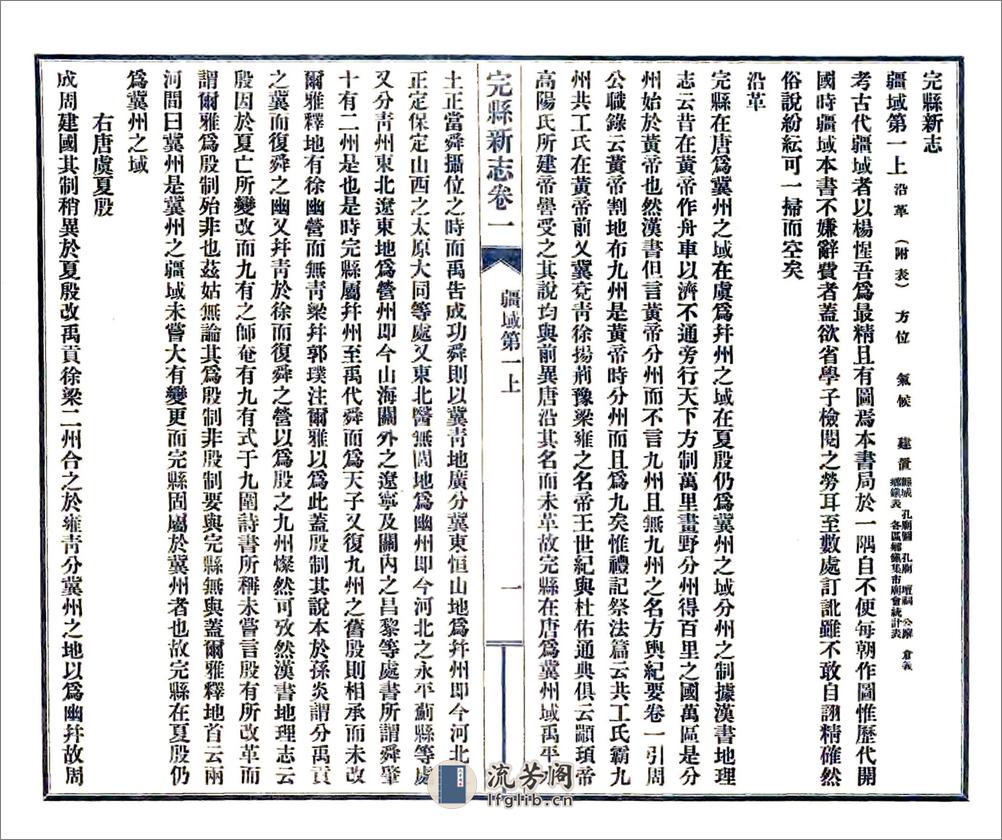 完縣新志
疆域第一上 沿革（附表）方位 氣候 建置 縣城 孔廟圖 孔廟 壇祠 公廨 倉義
鄉鎮表 各區鄉鎮集市廟會統計表
考古代疆域者以楊惺吾爲最精且有圖焉本書局於一隅自不便每朝作圖惟歷代開
國時疆域本書不嫌辭費者蓋欲省學子檢閱之勞耳至數處訂訛雖不敢自詡精確然
俗說紛紜可一掃而空矣
沿革
完縣在唐爲冀州之域在虞爲幷州之域在夏殷仍爲冀州之域分州之制據漢書地理
志云昔在黃帝作舟車以濟不通旁行天下方制萬里畫野分州得百里之國萬區是分
州始於黃帝也然漢書但言黃帝分州而不言九州且無九州之名方輿紀要卷一引周
公職錄云黃帝割地布九州是黃帝時分州而且爲九矣惟禮記祭法篇云共工氏霸九
州共工氏在黃帝前又冀兗靑徐揚荊豫梁雍之名帝王世紀與杜佑通典俱云顓頊帝
高陽氏所建帝嚳受之其說均與前異唐沿其名而未革故完縣在唐爲冀州域禹平水
完縣新志卷一
疆域第一上
一
土正當舜攝位之時而禹告成功舜則以冀靑地廣分冀東恒山地爲幷州即今河北之
正定保定山西之太原大同等處又東北醫無閭地爲幽州即今河北之永平薊縣等處
又分靑州東北遼東地爲營州即今山海關外之遼寧及關內之昌黎等處書所謂舜肇
十有二州是也是時完縣屬幷州至禹代舜而爲天子又復九州之舊殷則相承而未改
爾雅釋地有徐幽營而無靑梁幷郭璞注爾雅以爲此蓋殷制其說本於孫炎謂分禹貢
之冀而復舜之幽又幷靑於徐而復舜之營以爲殷之九州燦然可攷然漢書地理志云
殷因於夏亡所變改而九有之師奄有九有式于九圍詩書所稱未嘗言殷有所改革而
謂爾雅爲殷制殆非也茲姑無論其爲殷制非殷制要與完縣無與蓋爾雅釋地首云兩
河間曰冀州是冀州之疆域未嘗大有變更而完縣固屬於冀州者也故完縣在夏殷仍
爲冀州之域
右唐虞夏殷
成周建國其制稍異於夏殷改禹貢徐梁二州合之於雍靑分冀州之地以爲幽幷故周
流芳阁
lfglib.cn